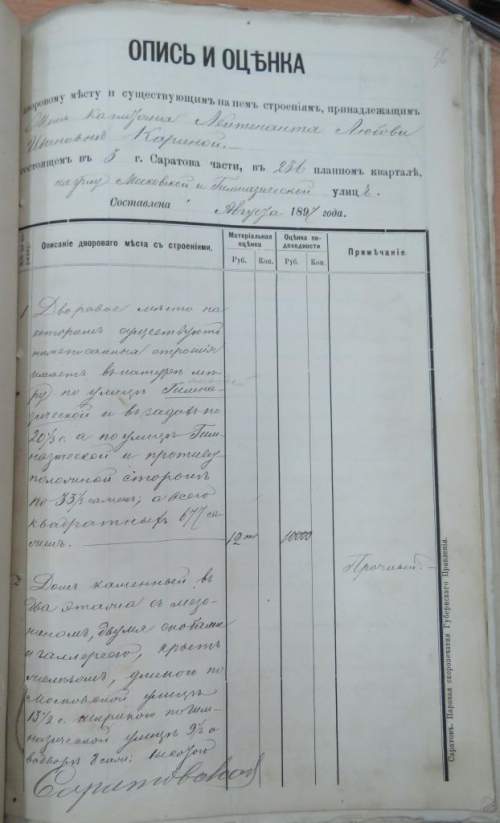 ОПИСЬ И ОЦѢНКА
дворовому мѣсту и существующимъ на немъ строеніямъ, принадлежащимъ
Жены Капитана Лейтенанта Любови
Ивановны Кариной.
состоящемъ въ 3 г. Саратова части, въ 236 планномъ кварталѣ,
на углу Московской и Гимназической улицѣ.
Составлена Августа 1897 года.
Описаніе двороваго мѣста съ строеніями.
Матеріальная оцѣнка
Оцѣнка по доходности
Примѣчаніе
Руб. Коп. Руб. Коп.
1 Дворовое мѣсто на
которомъ существуютъ
нижеписанныя строенія
имѣетъ въ натурѣ мѣ-
ру по улицѣ Гимна-
зической и въ задахъ по
20⅓ с. а по улицѣ Гим-
назической и противу
положной сторонѣ
по 33⅓ сажен; а всего
квадратныхъ 677 са-
жень. 12 10000
Прочный
2 Домъ каменный въ
два этажа съ мезо-
ниномъ, двумя
и галлереею, крытъ
желѣзомъ, длиною по
Московской улицѣ
13½ с. шириною по Гим-
назической улицѣ 9½ а
Саратовъ. Паровая скоропечатня Губернскаго Правленія.